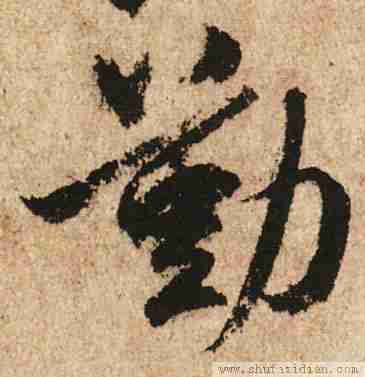 勤
www.shufazidian.com